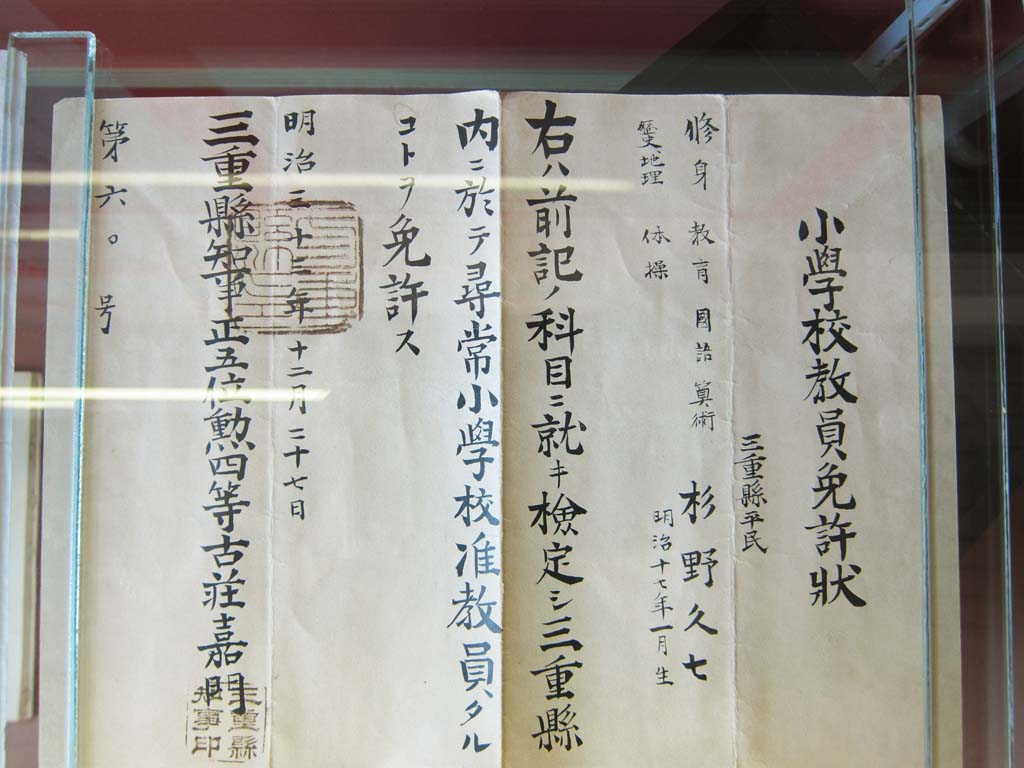 小學校教員免許狀
三重縣平民
杉野久七
明治十七年一月生
修身 教育 國語 算術
歴史 地理 体操
右ハ前記ノ科目ニ就キ檢定シ三重縣
内ニ於テ尋常小學校准教員タル
コトヲ免許ス
明治三十二年十二月二十七日
三重縣知事正五位勲四等古莊嘉門
三重縣知事印
第六〇号